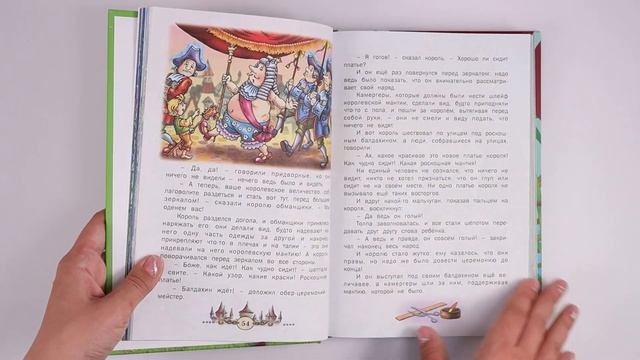 – Да, да! – говорили придворные, хо
ничего не видели – нечего ведь было и видеть.
– А теперь, ваше королевское величество, со-
благоволите раздеться и стать вот тут, перед большим
зеркалом! – сказали королю обманщики. – Мы
оденем вас!
Король разделся догола, и обманщики принялись
наряжать его: они делали вид, будто надевают на
него одну часть одежды за другой и наконец
прикрепляют что-то в плечах и на талии – это они
надевали на него королевскую мантию! А король
поворачивался перед зеркалом во все стороны.
– Боже, как идёт! Как чудно сидит! – шептали
в свите. – Какой узор, какие краски! Роскошное
платье!
– Балдахин ждёт! – доложил обер-церемоний-
мейстер.
54
– Я готов! – сказал король. – Хорошо ли сидит
платье?
И он ещё раз повернулся перед зеркалом: надо
ведь было показать, что он внимательно рассматри-
вает свой наряд.
Камергеры, которые должны были нести шлейф
королевской мантии, сделали вид, будто приподняли
что-то с пола, и пошли за королём, вытягивая перед
собой руки, – они не смели и виду подать, что
ничего не видят.
И вот король шествовал по улицам под роскош-
ным балдахином, а люди, собравшиеся на улицах,
говорили:
– Ах, какое красивое это новое платье короля!
Как чудно сидит! Какая роскошная мантия!
Ни единый человек не сознался, что ничего не
видит, никто не хотел признаться, что он глуп или
сидит не на своём месте. Ни одно платье короля не
вызывало ещё таких восторгов.
И вдруг какой-то мальчуган, показывая пальцем
на короля, воскликнул:
– Да ведь он голый!
Толпа заволновалась, и все стали шёпотом пере-
давать друг другу слова ребёнка.
– А ведь и правда, он совсем голый! – закри-
чал наконец весь народ.
И королю стало жутко: ему казалось, что они
правы, но надо же было довести церемонию до
конца!
И он выступал под своим балдахином ещё ве-
личавее, а камергеры шли за ним, поддерживая
мантию, которой не было.